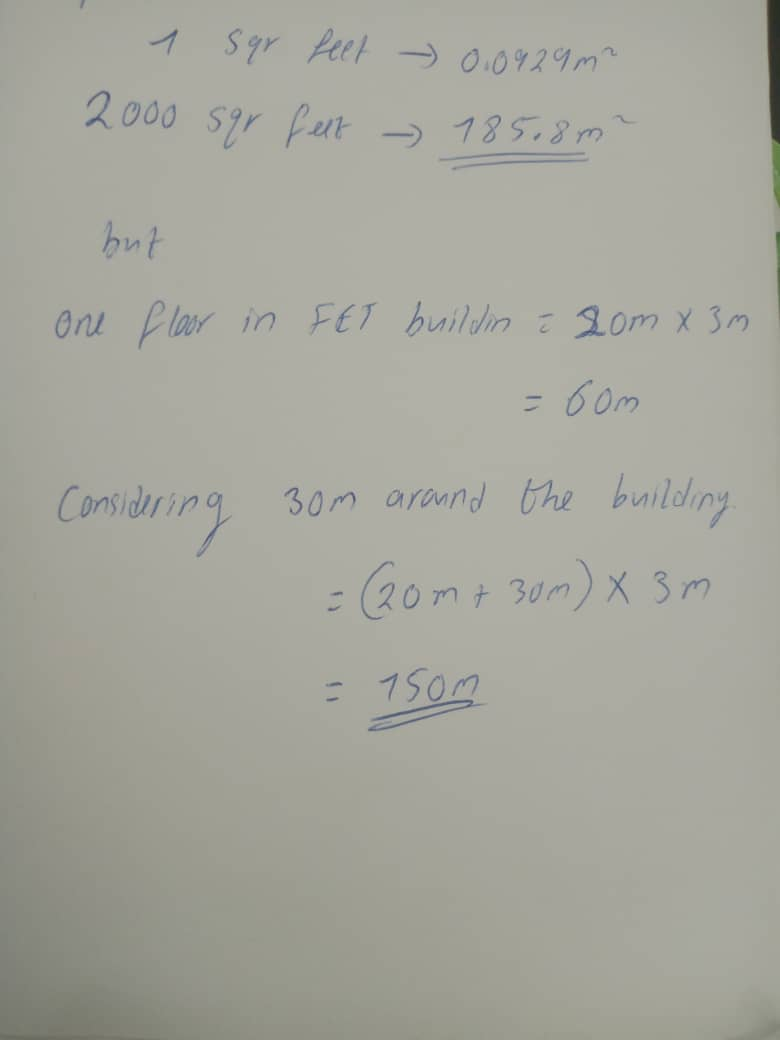 1 sqr feet → 0.0929m²
2000 sqr feet → 185.8m²
but
one floor in FET buildin = 20m x 3m
= 60m
Considering 30m around the building.
= (20m + 30m) x 3m
= 150m